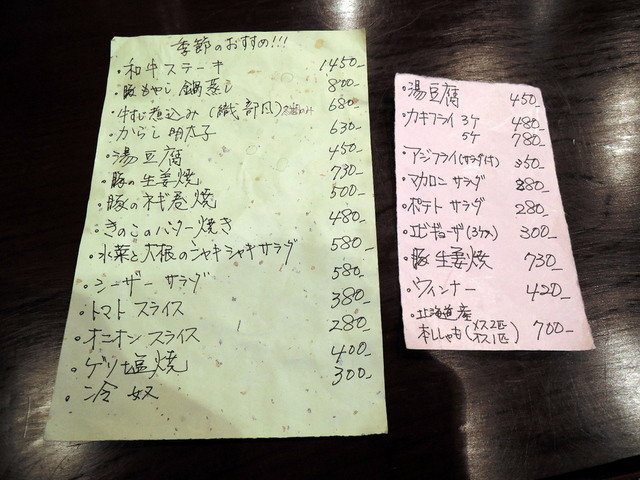 季節のおすすめ!!!
・和牛ステーキ 1450-
・豚もやし鍋蒸し 800-
・牛すじ煮込み(織部風) 680-
・からし明太子 630-
・湯豆腐 450-
・豚の生姜焼 730-
・豚のネギ巻焼 500-
・きのこのバター焼き 480-
・水菜と大根のシャキシャキサラダ 580-
・シーザーサラダ 580-
・トマトスライス 380-
・オニオンスライス 280-
・ゲソ塩焼 400-
・冷奴 300-
・湯豆腐 450-
・カキフライ 3ケ 480-
5ケ 780-
・アジフライ(サラダ付) 350-
・マカロニサラダ 280-
・ポテトサラダ 280-
・エビギョーザ(3ケ入) 300-
・豚生姜焼 730-
・ウィンナー 420-
・北海道産
本ししゃも(メス2匹 オス1匹) 700-